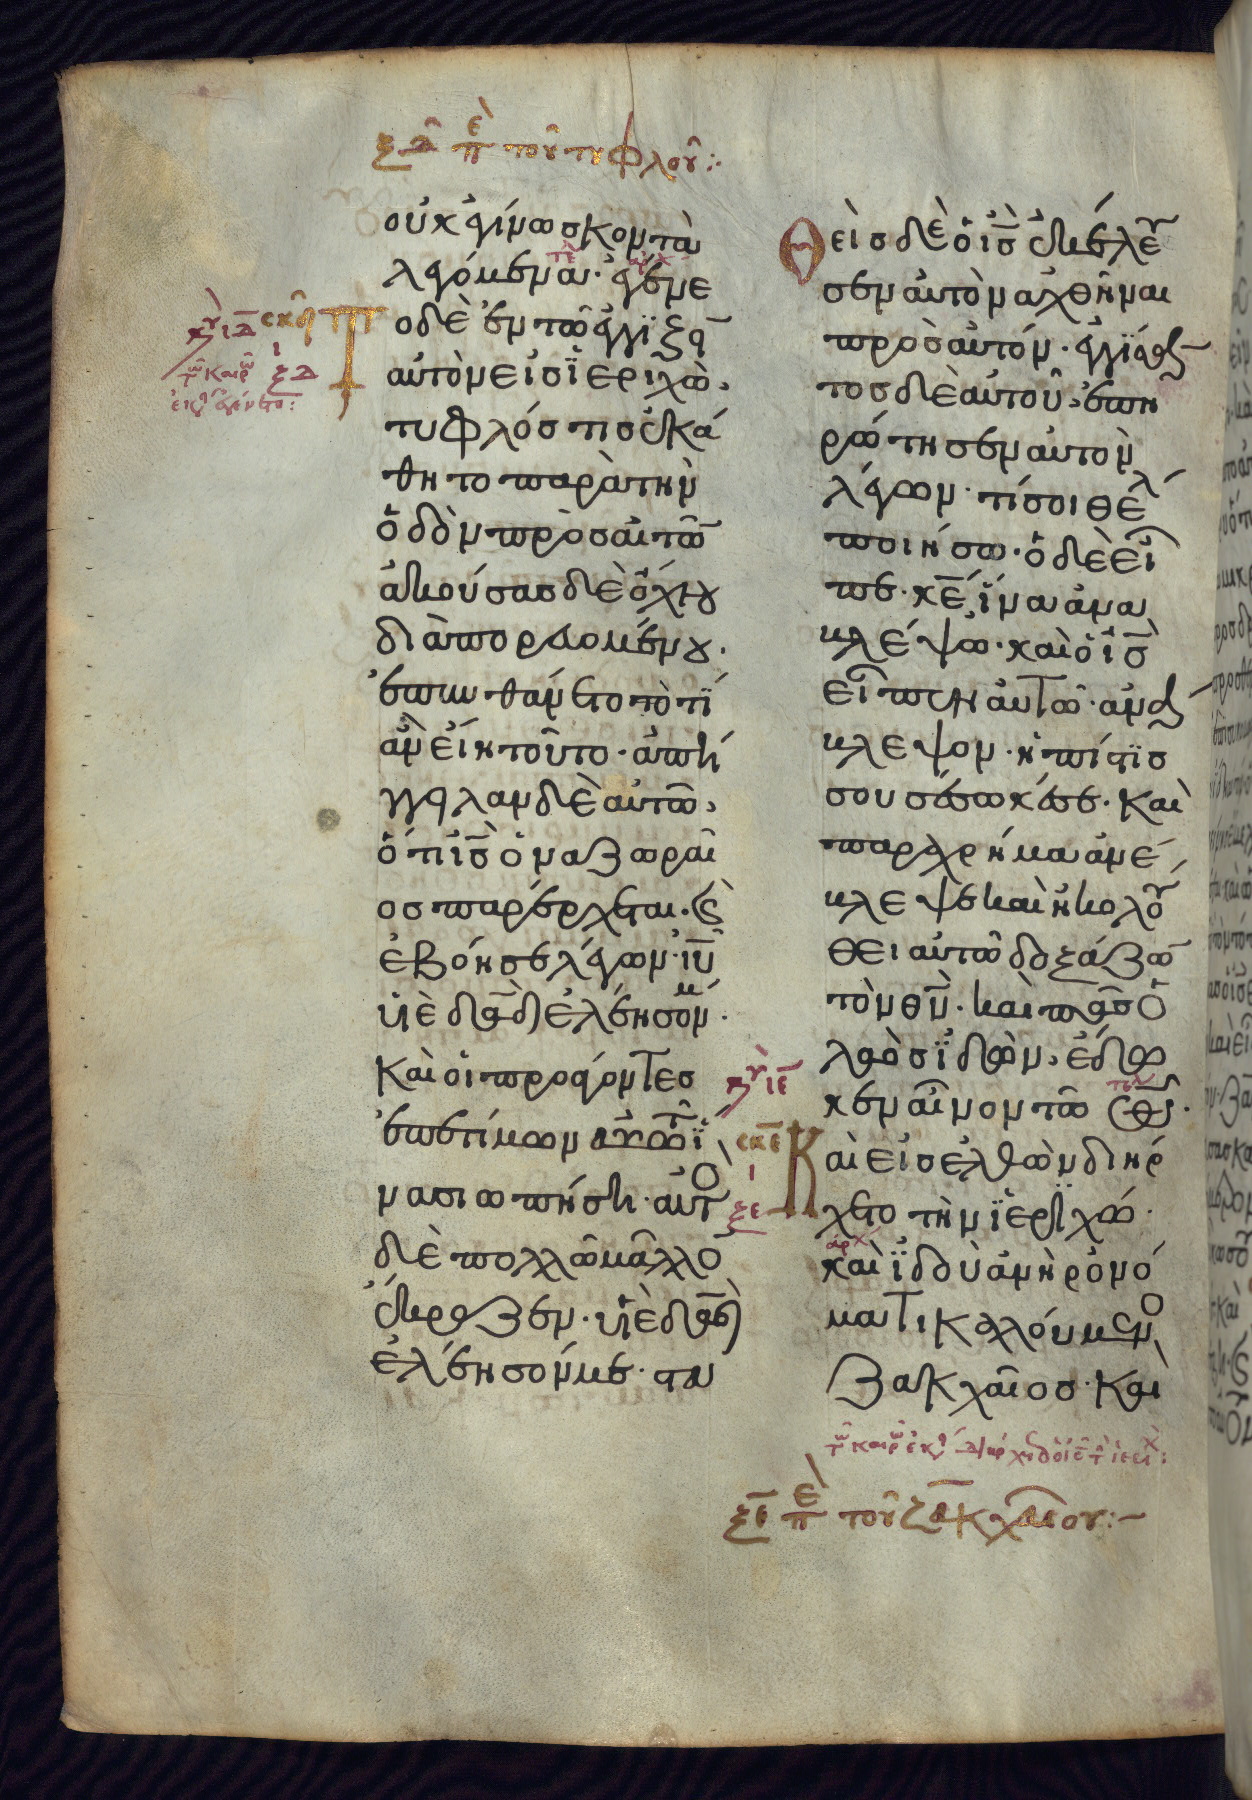 ξδ πε τοῦ τυφλοῦ:·
οὐκ ἐγίνωσκον τὰ
λεγόμενα· ἐγένε
Τοδὲ ἐν τῶ ἐγγΐζει
αὐτὸν εἰς ϊεριχὼ,
τυφλόσ τισ ἐκά
θητο παρὰ τὴν
ὁδὸν προσαιτῶ
ἀκούσασ δὲ ὄχλου
διαπορευομένου·
ἐπυνθάνετο τὸ τί
ἂν εἴη τοῦτο· ἀπή
γγειλαν δὲ αὐτῶ,
ὅτι ι̅σ̅ ὁ ναζωραῖ
οσ παρέρχεται· κ(αὶ)
ἐβόησε λέγων· ι̅υ̅
υἱὲ δα̅δ̅ ἐλέησόν μ·
καὶ οἱ προάγοντεσ
ἐπετίμων αὐτῶ ἵ
να σιωπήση· αὐτο
δὲ πολλῶ μᾶλλο
ἔκραζεν· υἱὲ δα̅δ̅
ἐλέησόν με· στα
Θεὶσ δὲ ὁ ι̅σ̅ ἐκέλευ
σεν αὐτὸν ἀχθῆναι
πρὸσ αὐτόν· ἐγγίσαν
τοσ δὲ αὐτοῦ, ἐπη
ρώτησεν αὐτὸν
λέγων· τί σοι θέλ
ποιήσω· ὁ δὲ εἶ
πε· κ̅ε̅ ἵνα ἀνα
βλέψω· καὶ ὁ ι̅σ̅
εἶπεν αὐτῶ· ἀνά
βλεψον· ἡ πίστισ
σου σέσωκέ σε· καὶ
παραχρῆμα ἀνέ
βλεψε καὶ ἠκολού
θει αὐτῶ δοξάζω
τὸν θ̅ν̅· καὶ πᾶσ ὁ
λαὸσ ϊδὼν, ἔδω
κεν αἶνον τῶ θ̅ω̅·
Καὶ εἰσελθὼν διήρ
χετο τὴν ϊεριχώ·
καὶ ϊδοὺ ἀνὴρ ὀνό
ματι καλούμενο
ζακχαῖοσ· καὶ
ξε πε τοῦ ζακχαίου:–